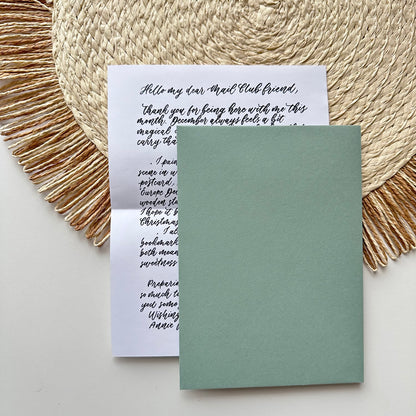 Hello my dear Mail Club friend,
Thank you for being here with me this
month. December always feels a bit
magical
carry tha
. I pain
scene in w
postcard,
Europe De
wooden sta
I hope it b
Christmas
. I al
bookmark
both mean
sweetness
Preparin
so much to
you some
Wishing
Annie